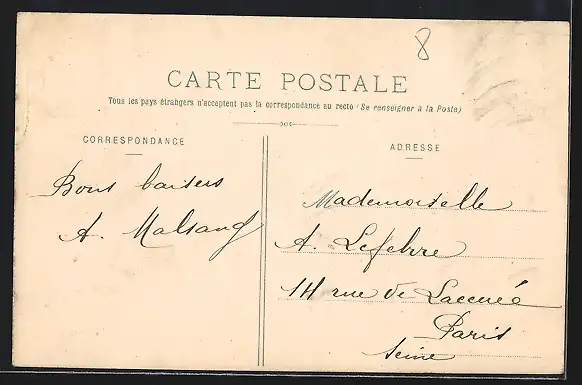 8
CARTE POSTALE
Tous les pays étrangers n'acceptent pas la correspondance au recto (Se renseigner à la Poste)
CORRESPONDANCE
ADRESSE
Bons baisers
A. Malsang
Mademoiselle
A. Lefebvre
14 rue de Lacuée
Paris
Seine